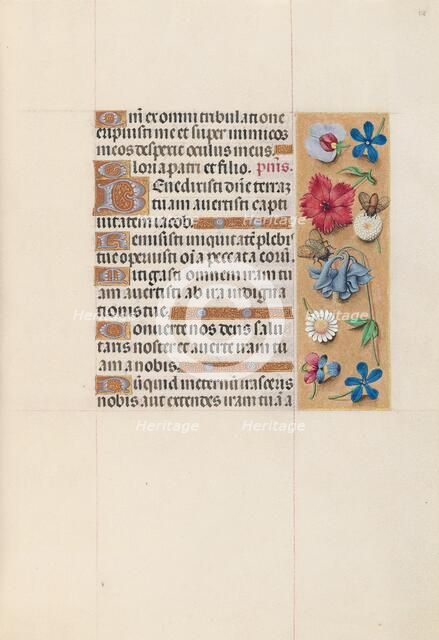 Qm̄ ex omni tribulatione
eripuisti me et super inimicos
meos despexit oculus meus.
Gloria patri et filio. p̄mus.
Benedixisti dn̄e terrā
tuam avertisti capti
vitatem iacob.
Remisisti iniquitatē plebis
tue operuisti oīa peccata eorū.
Mitigasti omnem iram tu
am avertisti ab ira indigna
tionis tue.
Converte nos deus salu
taris noster et averte iram tu
am a nobis.
Nunquid in eternū irasceris
nobis aut extendes iram tuā a
Heritage Heritage Heritage
Heritage Heritage Heritage